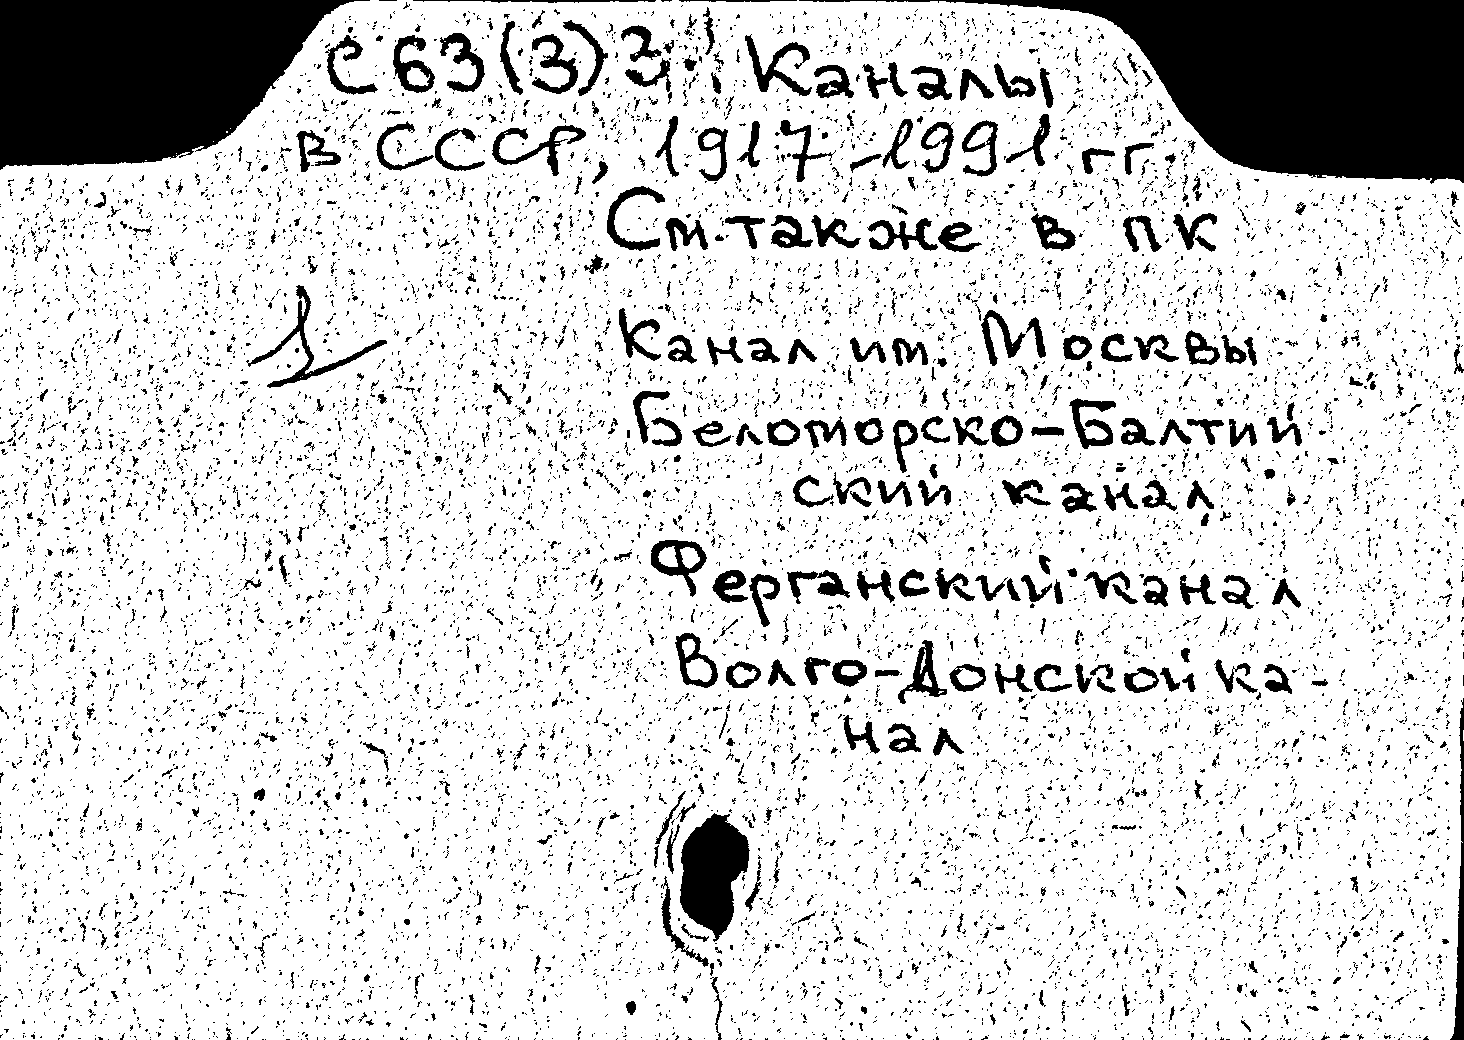 С63(3)3. Каналы
в СССР, 1917-1991 гг.
См. также в ПК
1
Канал им. Москвы
Беломорско-Балтий
ский канал
Ферганский канал
Волго-Донской ка-
нал